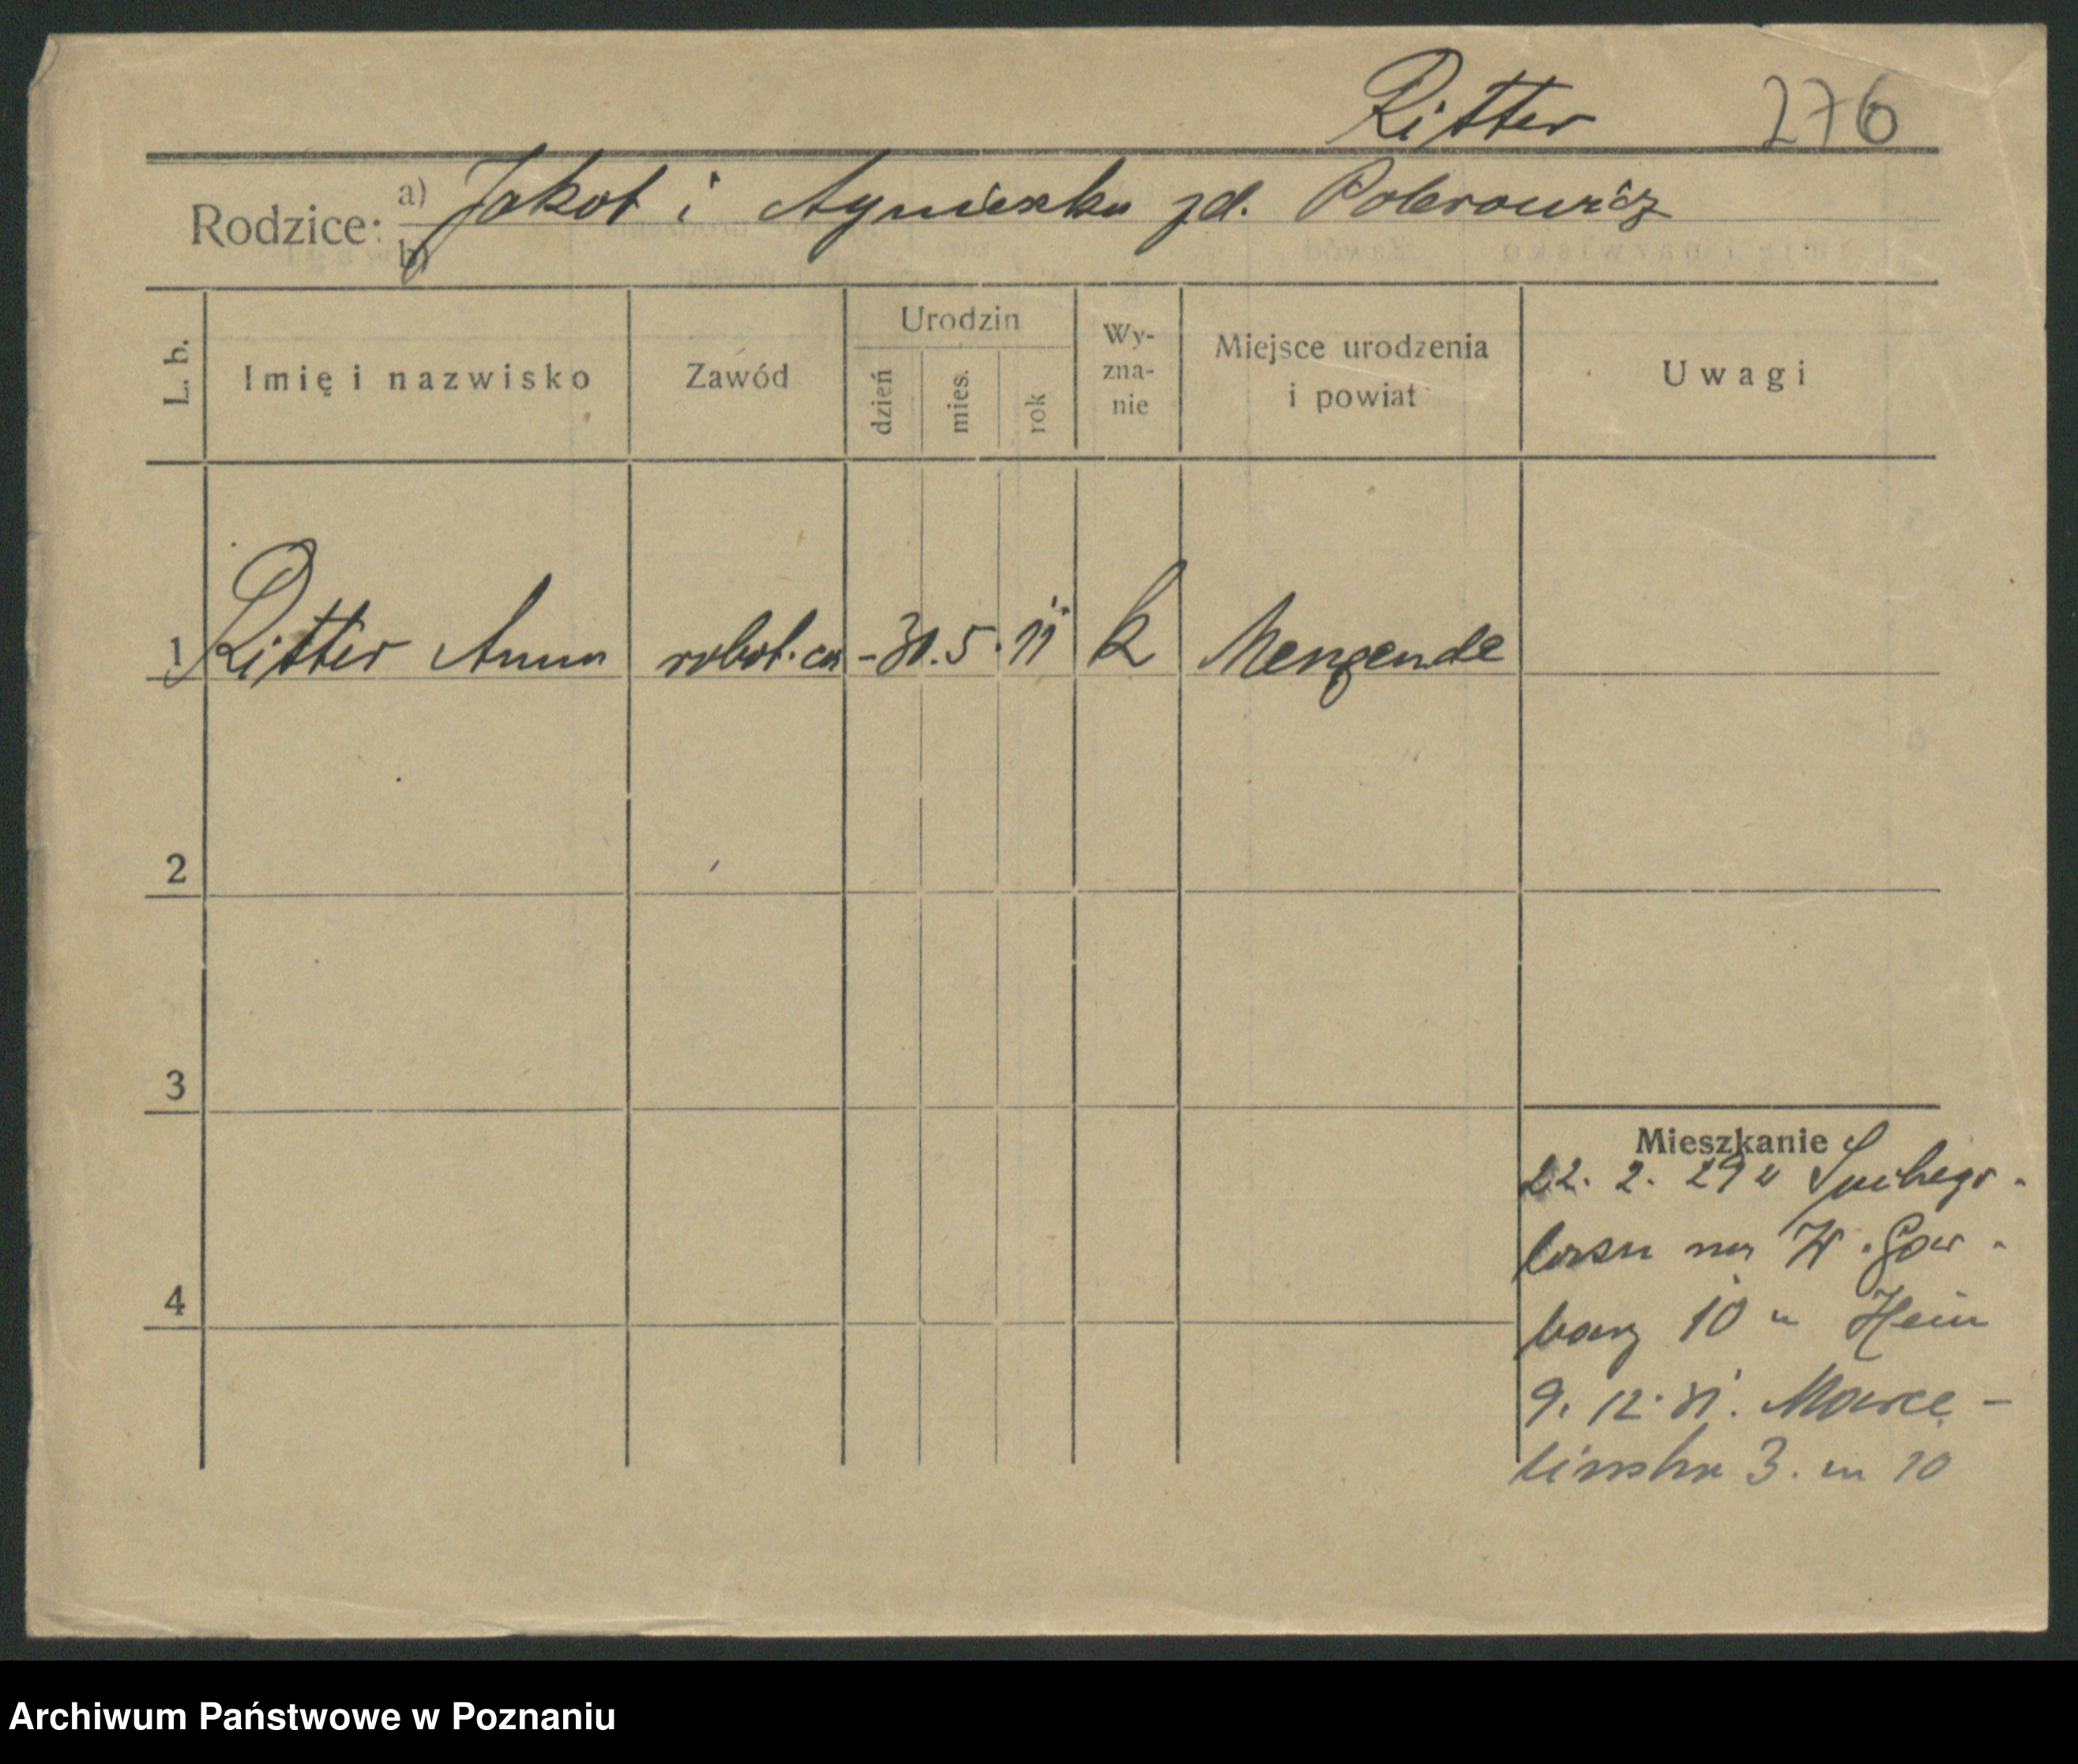 Ritter 276
Rodzice: a) Jakob i Agnieszka zd. Bobrowicz
b)
L. b. Imię i nazwisko Zawód Urodzin dzień mies. rok Wy-zna-nie Miejsce urodzenia i powiat Uwagi
1 Ritter Anna robot.ca - 31. 5. 11 k Mengende
2
3
4
Mieszkanie
22. 2. 29 z Suchego-
lasu na W. Gar-
bary 10 u Hein
9. 12. 31. Marce-
lińska 3. m 10
Archiwum Państwowe w Poznaniu